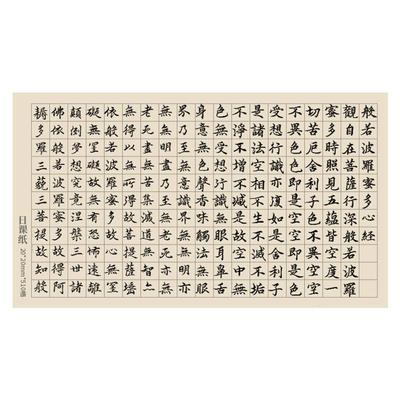 般若波羅蜜多心經
觀自在菩薩行深般若波羅
蜜多時照見五蘊皆空度一
切苦厄舍利子色不異空空
不異色色即是空空即是色
受想行識亦復如是舍利子
是諸法空相不生不滅不垢
不淨不增不減是故空中無
色無受想行識無眼耳鼻舌
身意無色聲香味觸法無眼
界乃至無意識界無無明亦
無無明盡乃至無老死亦無
老死盡無苦集滅道無智亦
無得以無所得故菩提薩埵
依般若波羅蜜多故心無罣
礙無罣礙故無有恐怖遠離
顛倒夢想究竟涅槃三世諸
佛依般若波羅蜜多故得阿
耨多羅三藐三菩提故知般
日课纸 20*20mm*510格